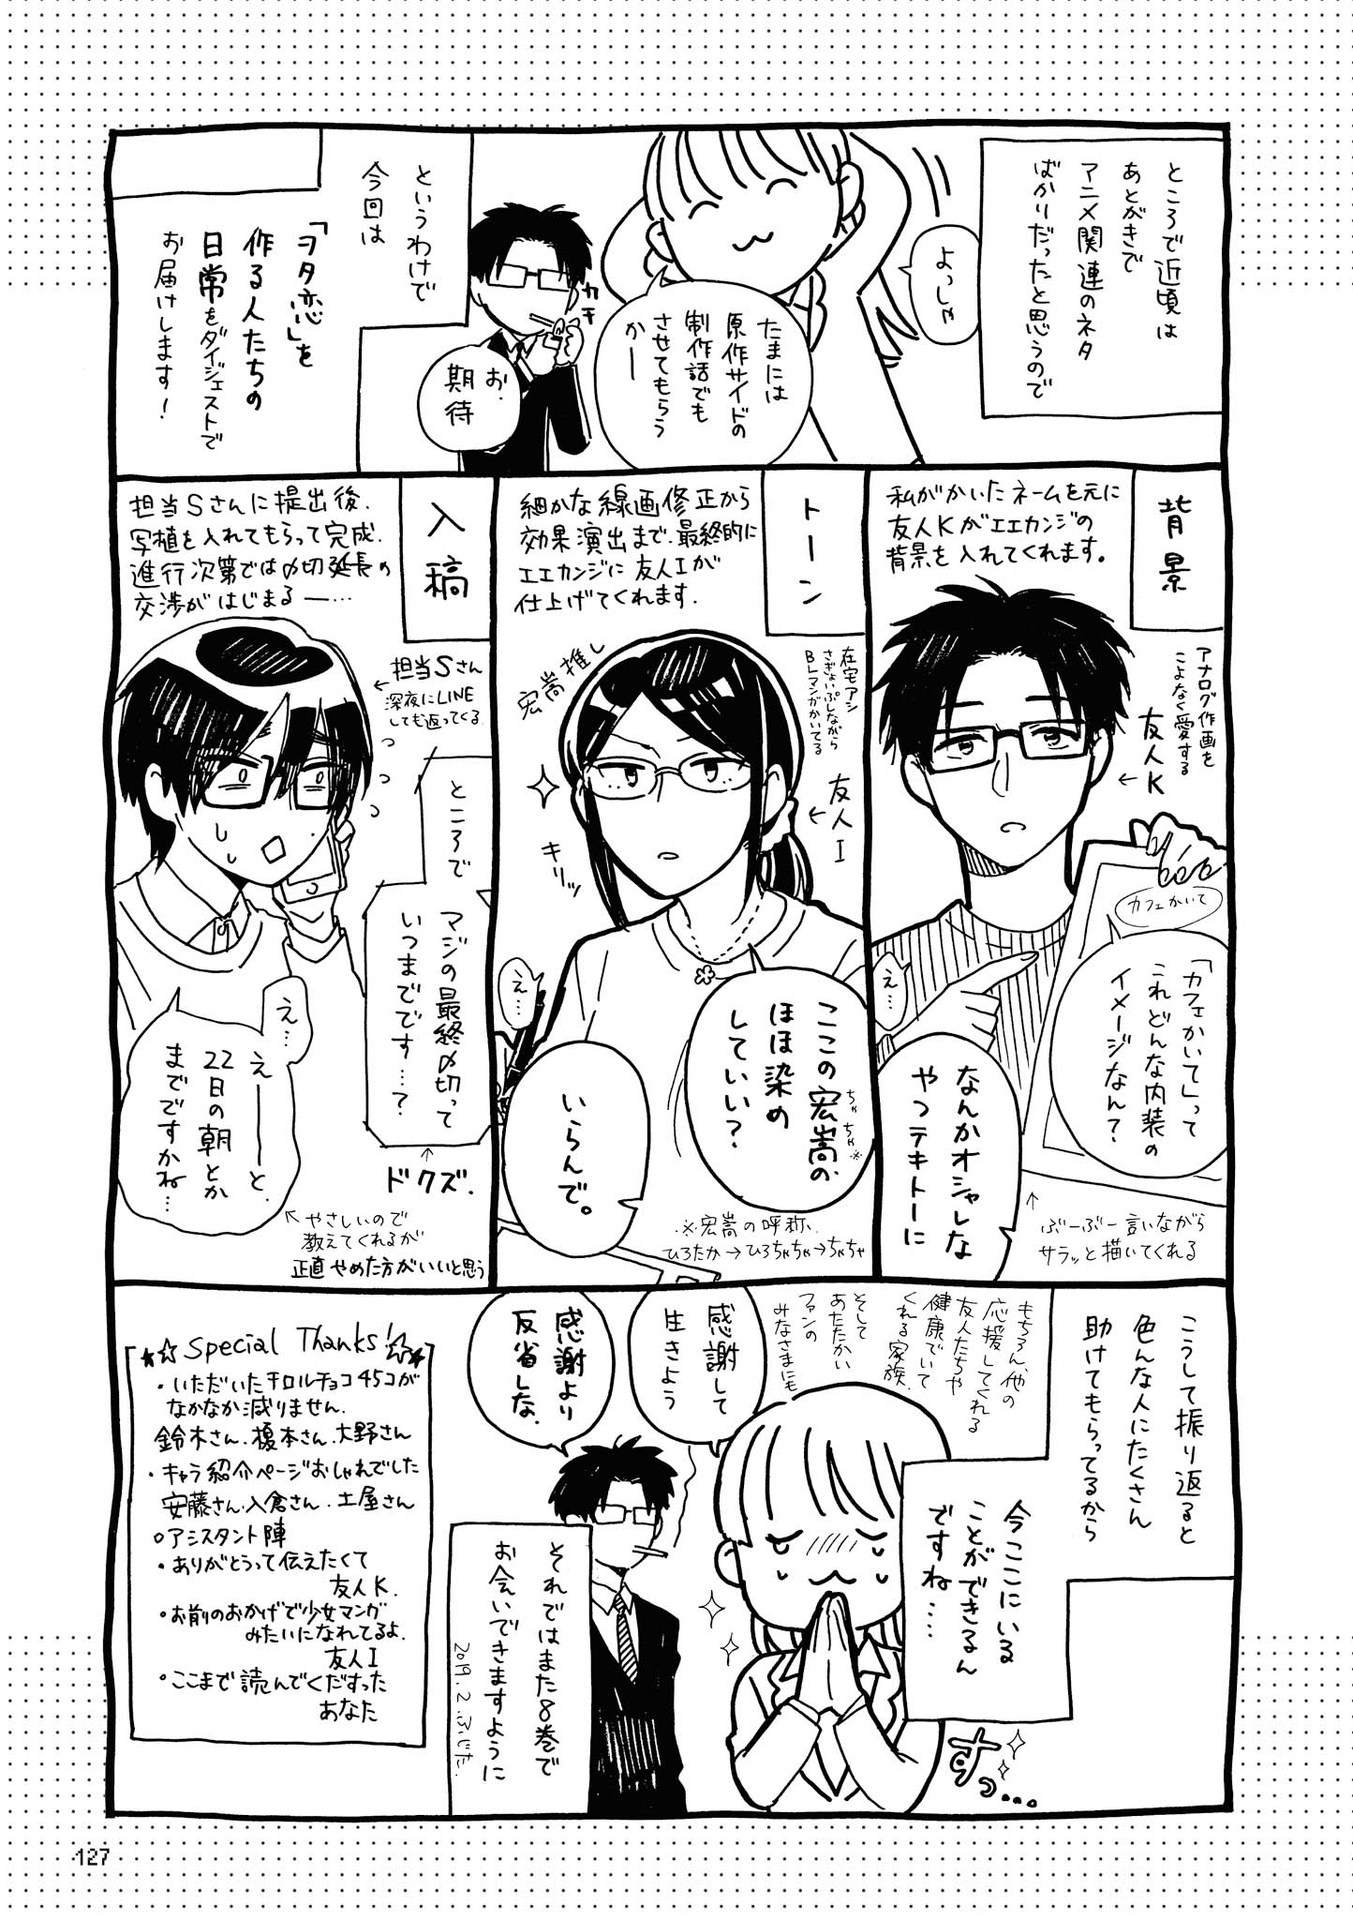 ところで近頃は
あとがきで
アニメ関連のネタ
ばかりだったと思うので
よっしゃ
たまには
原作サイドの
制作話でも
させてもらう
かー
お、
期待
カチ
というわけで
今回は
「ヲタ恋」を
作る人たちの
日常をダイジェストで
お届けします!
背景
私がかいたネームを元に
友人Kがエエカンジの
背景を入れてくれます。
アナログ作画を
こよなく愛する
友人K
カフェかいて
「カフェかいて」って
これどんな内装の
イメージなん?
え…
なんかオシャレな
やつテキトーに
ぶーぶー言いながら
サラッと描いてくれる
トーン
細かな線画修正から
効果演出まで、最終的に
エエカンジに友人Iが
仕上げてくれます。
在宅アシ
さぎょいぷしながら
BLマンガかいてる
友人I
宏嵩推し
キリッ
ここの宏嵩の
ちゃちゃ※
ほほ染め
していい?
え…
いらんで。
※宏嵩の呼称、
ひろたか→ひろちゃちゃ→ちゃちゃ
入稿
担当Sさんに提出後、
写植を入れてもらって完成。
進行次第では〆切延長の
交渉がはじまる――…
担当Sさん
深夜にLINE
しても返ってくる
ところで
マジの最終〆切って
いつまでです…?
ドクズ。
え…
えーーと、
22日の朝とか
までですかね…
やさしいので
教えてくれるが
正直やめた方がいいと思う
こうして振り返ると
色んな人にたくさん
助けてもらってるから
今ここにいる
ことができるん
ですね…
もちろん、他の
応援してくれる
友人たちや
健康でいて
くれる家族、
そして
あたたかい
ファンの
みなさまにも
感謝して
生きよう
すっ…
感謝より
反省しな。
それではまた8巻で
お会いできますように
2019.2.ふじた
☆☆Special Thanks!☆☆
・いただいたチロルチョコ45コが
なかなか減りません。
鈴木さん、榎本さん、大野さん
・キャラ紹介ページおしゃれでした
安藤さん、入倉さん、土屋さん
・アシスタント陣
・ありがとうって伝えたくて
友人K.
・お前のおかげで少女マンガ
みたいになれてるよ.
友人I
・ここまで読んでくだすった
あなた
127